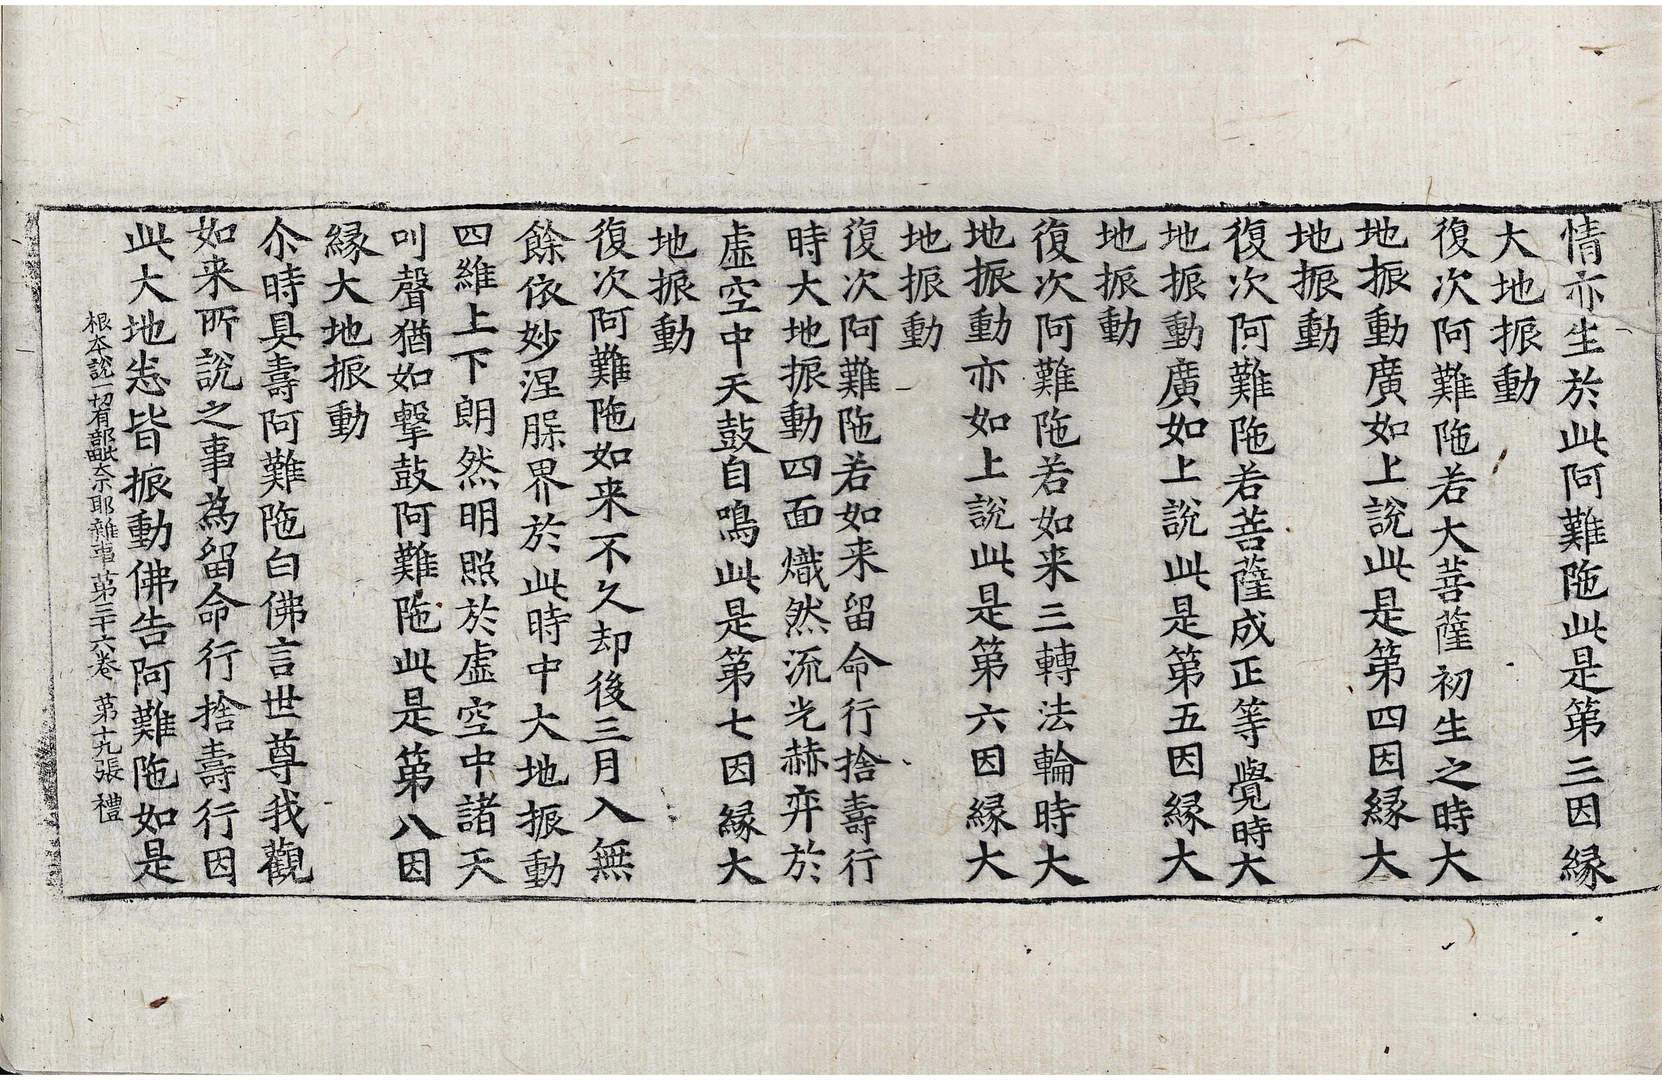 情亦生於此阿難陁此是第三因縁
大地振動
復次阿難陁若大菩薩初生之時大
地振動廣如上說此是第四因縁大
地振動
復次阿難陁若菩薩成正等覺時大
地振動廣如上說此是第五因縁大
地振動
復次阿難陁若如来三轉法輪時大
地振動亦如上說此是第六因縁大
地振動
復次阿難陁若如来留命行捨壽行
時大地振動四面熾然流光赫弈於
虛空中天鼓自鳴此是第七因縁大
地振動
復次阿難陁如来不久却後三月入無
餘依妙涅槃界於此時中大地振動
四維上下朗然明照於虛空中諸天
叫聲猶如擊鼓阿難陁此是第八因
縁大地振動
尒時具壽阿難陁白佛言世尊我觀
如来所說之事為留命行捨壽行因
此大地悉皆振動佛告阿難陁如是
根本說一切有部毗奈耶雜事第三十六卷 第十九張 禮